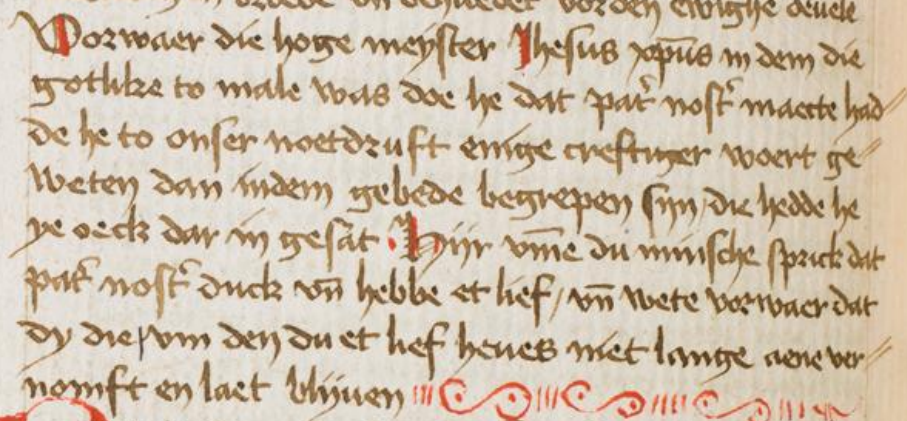 Vorwaer die hoge meyster Jhesus xpūs in dem die
gotlike to male was doe he dat pat̄ nost̄ maecte had
de he to onser noetdruft enige creftiger woert ge
weten dan indem gebede begrepen syn / die hedde he
ye oeck dar in gesat . Hijr vm̄e du minsche sprick dat
pat̄ nost̄ duck vn̄ hebbe et lief / vn̄ wete vorwaer dat
dy die / vm den du et lief heues niet lange aene ver
nomft en laet blijuen